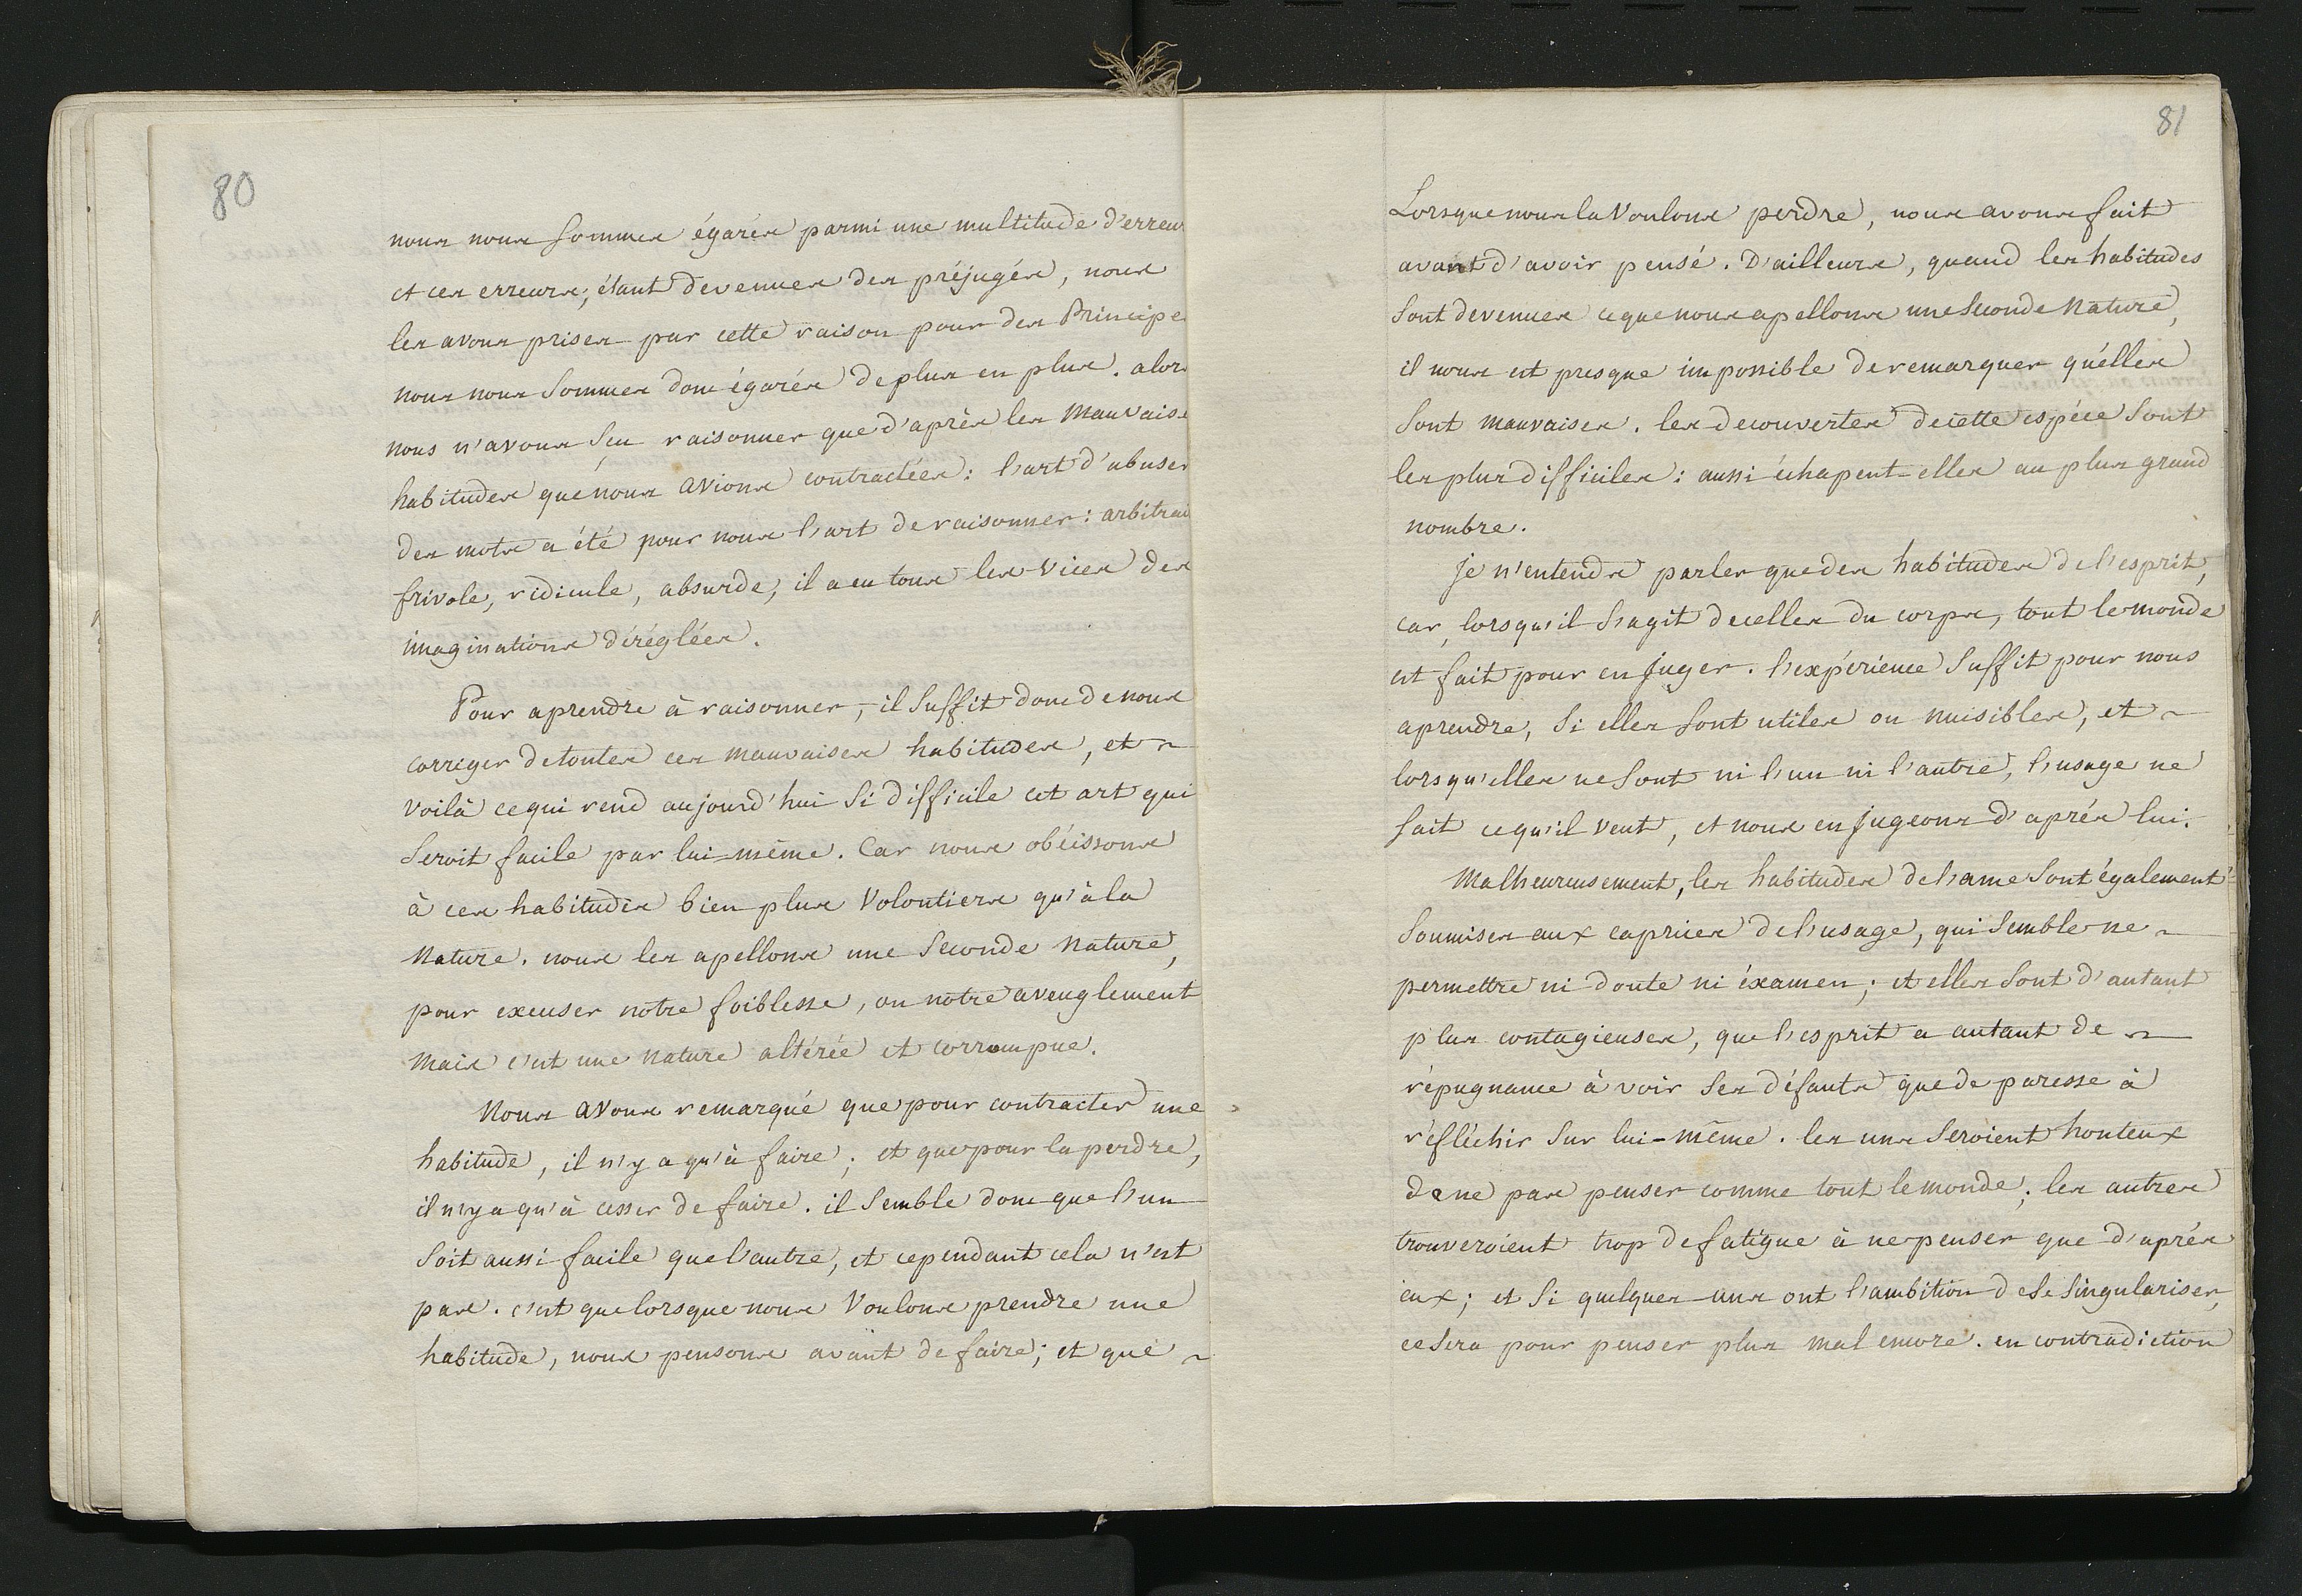 80
nous nous sommes égarés parmi une multitude d'erreur
et ces erreurs, étant devenues des préjugés, nous
les avons prises par cette raison pour des Principe
nous nous sommes donc égarés de plus en plus. alors
nous n'avons sçu raisonner que d'après les mauvaise
habitudes que nous avions contractées: l'art d'abuser
des mots a été pour nous l'art de raisonner: arbitrai
frivole, ridicule, absurde, il a eu tous les vices des
imaginations déréglées.
Pour aprendre à raisonner, il suffit donc de nous
corriger de toutes ces mauvaises habitudes, et
voilà ce qui rend aujourd'hui si difficile cet art qui
seroit facile par lui-même. Car nous obéissons
à ces habitudes bien plus volontiers qu'à la
nature. nous les apellons une seconde nature,
pour excuser notre foiblesse, ou notre aveuglement
mais c'est une nature altérée et corrompue.
Nous avons remarqué que pour contracter une
habitude, il n'y a qu'à faire; et que pour la perdre,
il n'y a qu'à cesser de faire. il semble donc que l'un
soit aussi facile que l'autre, et cependant cela n'est
pas. c'est que lorsque nous voulons prendre une
habitude, nous pensons avant de faire; et que
81
Lorsque nous la voulons perdre, nous avons fait
avant d'avoir pensé. D'ailleurs, quand les habitudes
sont devenues ce que nous apellons une seconde nature,
il nous est presque impossible de remarquer qu'elles
sont mauvaises. les decouvertes de cette espéce sont
les plus difficiles: aussi échapent-elles au plus grand
nombre.
je n'entends parler que des habitudes de l'esprit,
car, lorsqu'il s'agit de celles du corps, tout le monde
est fait pour en juger. l'expérience suffit pour nous
aprendre, si elles sont utiles ou nuisibles, et
lorsqu'elles ne sont ni l'un ni l'autre, l'usage ne
fait ce qu'il veut, et nous en jugeons d'aprés lui.
Malheureusement, les habitudes de l'ame sont également
soumises aux caprices de l'usage, qui semble ne
permettre ni doute ni éxamen; et elles sont d'autant
plus contagieuses, que l'esprit a autant de
répugnance à voir ses défauts que de paresse à
réfléchir sur lui-même. les uns seroient honteux
de ne pas penser comme tout le monde; les autres
trouveroient trop de fatigue à ne penser que d'aprés
eux; et si quelques-uns ont l'ambition de se singulariser,
ce sera pour penser plus mal encore. en contradiction